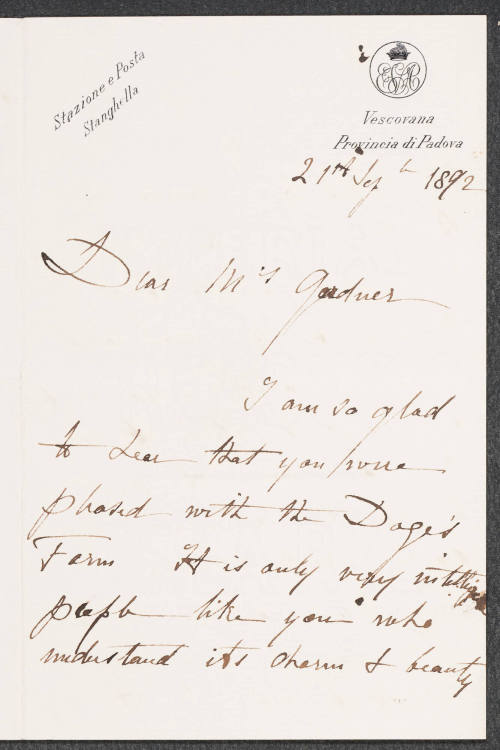 Stazione e Posta
Stanghella
Vescovana
Provincia di Padova
21st Septh 1892
Dear Mrs Gardner
I am so glad
to hear that you were
pleased with the Doge's
Farm It is only very intelligent
people like you who
understand its charm & beauty